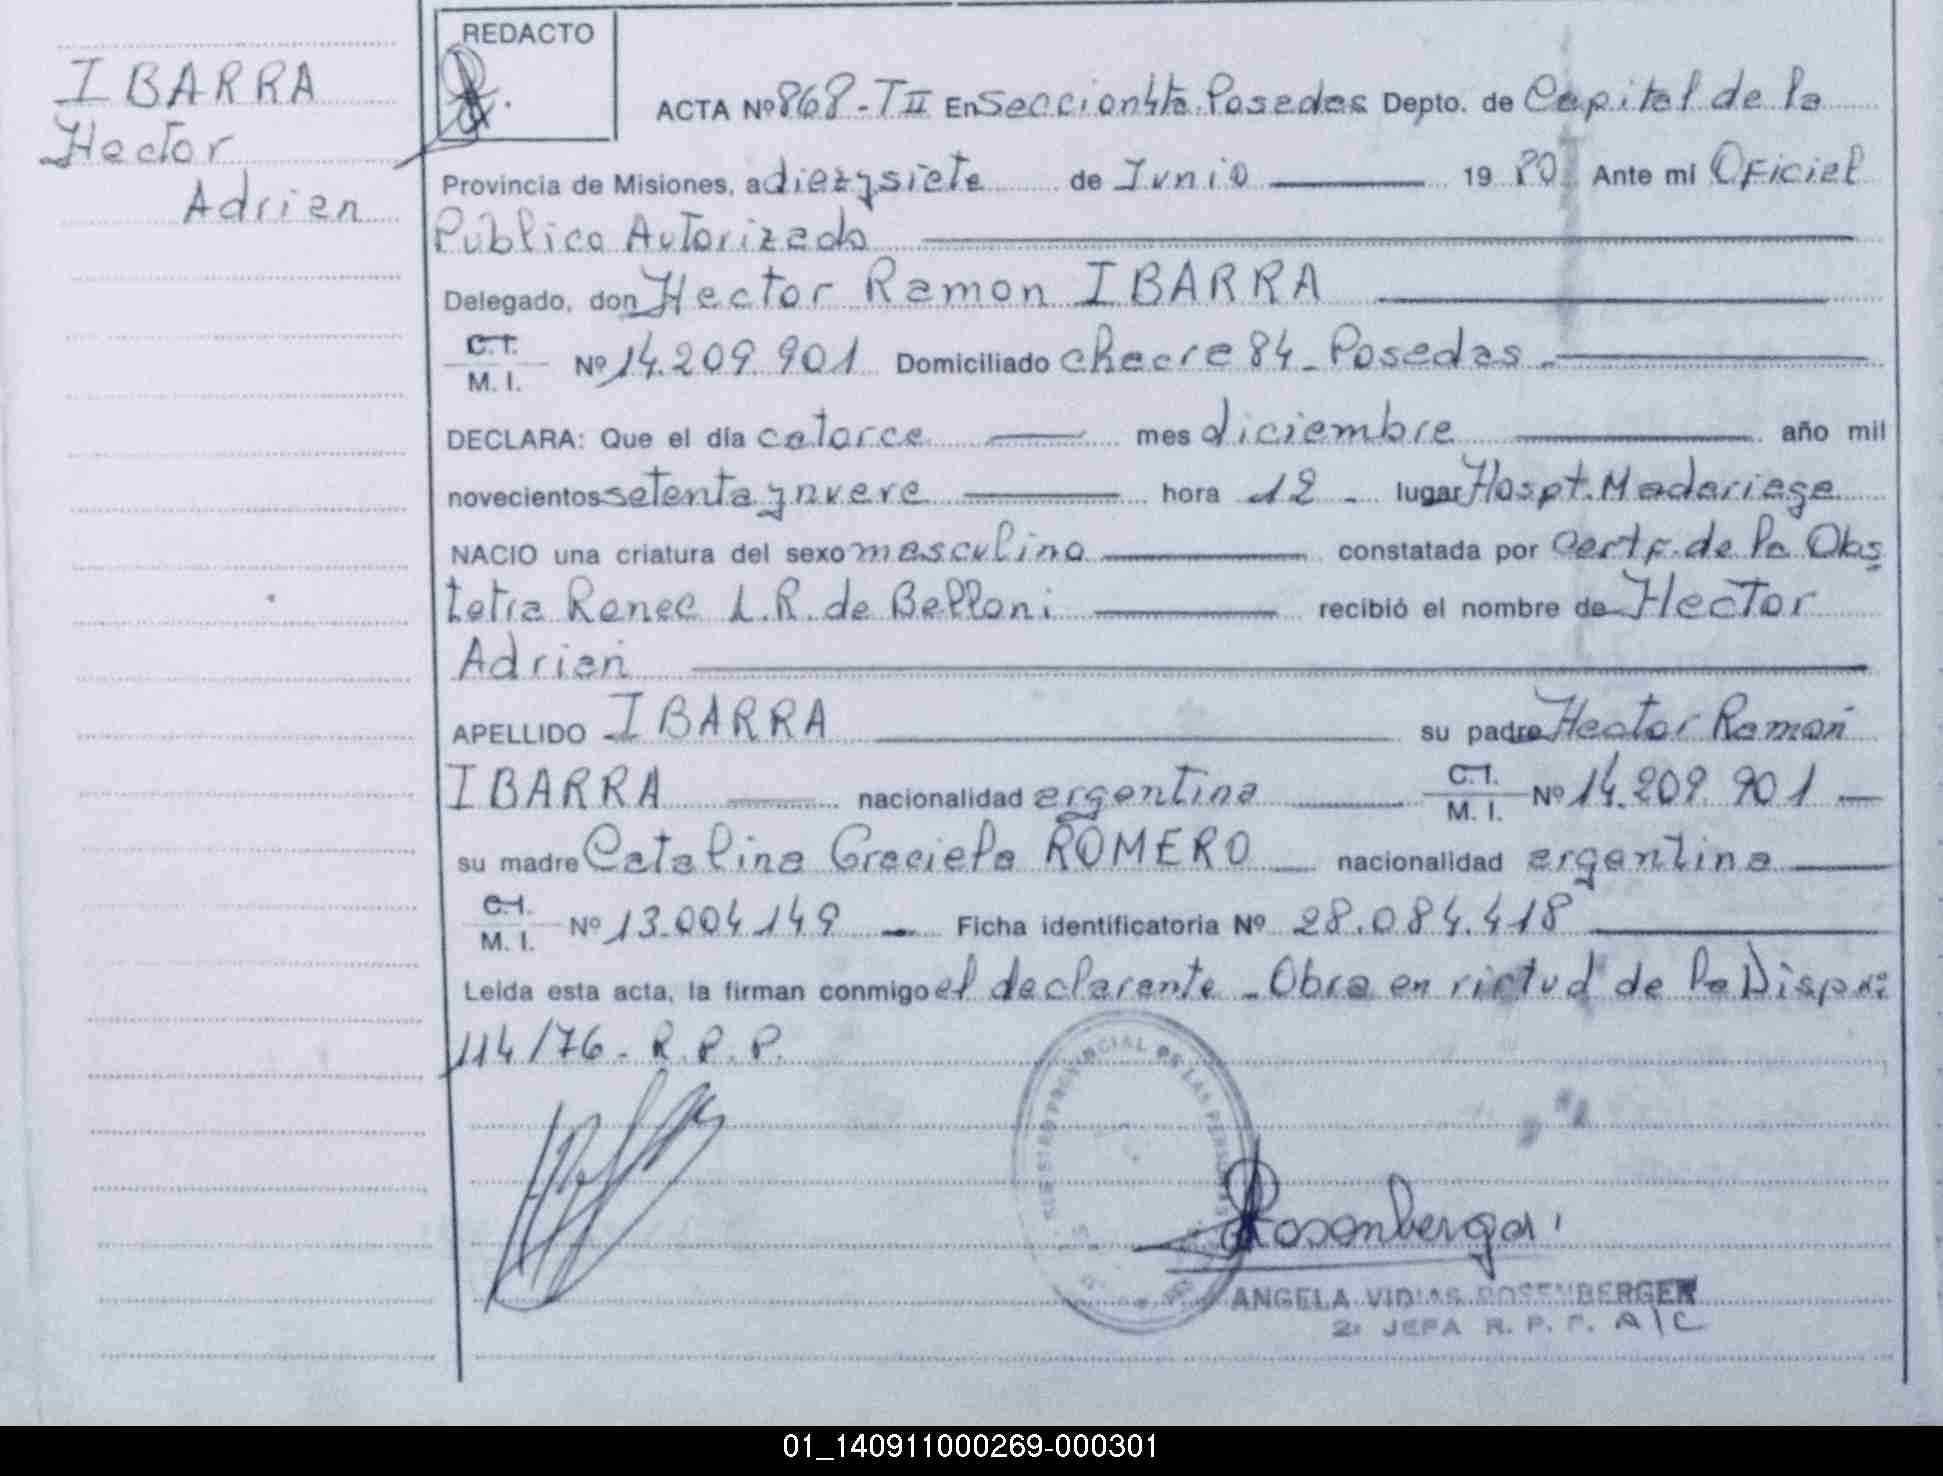 IBARRA
Hector
Adrian
REDACTO
ACTA Nº 868-TII En Seccion 4ta Posadas Depto. de Capital de la
Provincia de Misiones, a diez y siete de Junio 19 80 Ante mí Oficial
Publico Autorizado
Delegado, don Hector Ramon IBARRA
C.I.
M. I. Nº 14.209.901 Domiciliado chacra 84 - Posadas -
DECLARA: Que el día catorce mes diciembre año mil
novecientos setenta y nueve hora 12 - lugar Hospt. Madariaga
NACIO una criatura del sexo masculino constatada por Certf. de la Obs
tetra Renee L.R. de Belloni recibió el nombre de Hector
Adrian
APELLIDO IBARRA su padre Hector Ramon
IBARRA nacionalidad argentina C.I.
M. I. Nº 14.209.901
su madre Catalina Graciela ROMERO nacionalidad argentina
C.I.
M. I. Nº 13.004.149 Ficha identificatoria Nº 28.084.418
Leída esta acta, la firman conmigo el declarante - Obra en virtud de la Disp nº
114/76 - R.P.P.
PROVINCIAL DE LAS PERSONAS
Rosenberger
ANGELA ROSENBERGER
2º JEFA R. P. P. A/C
01_140911000269-000301